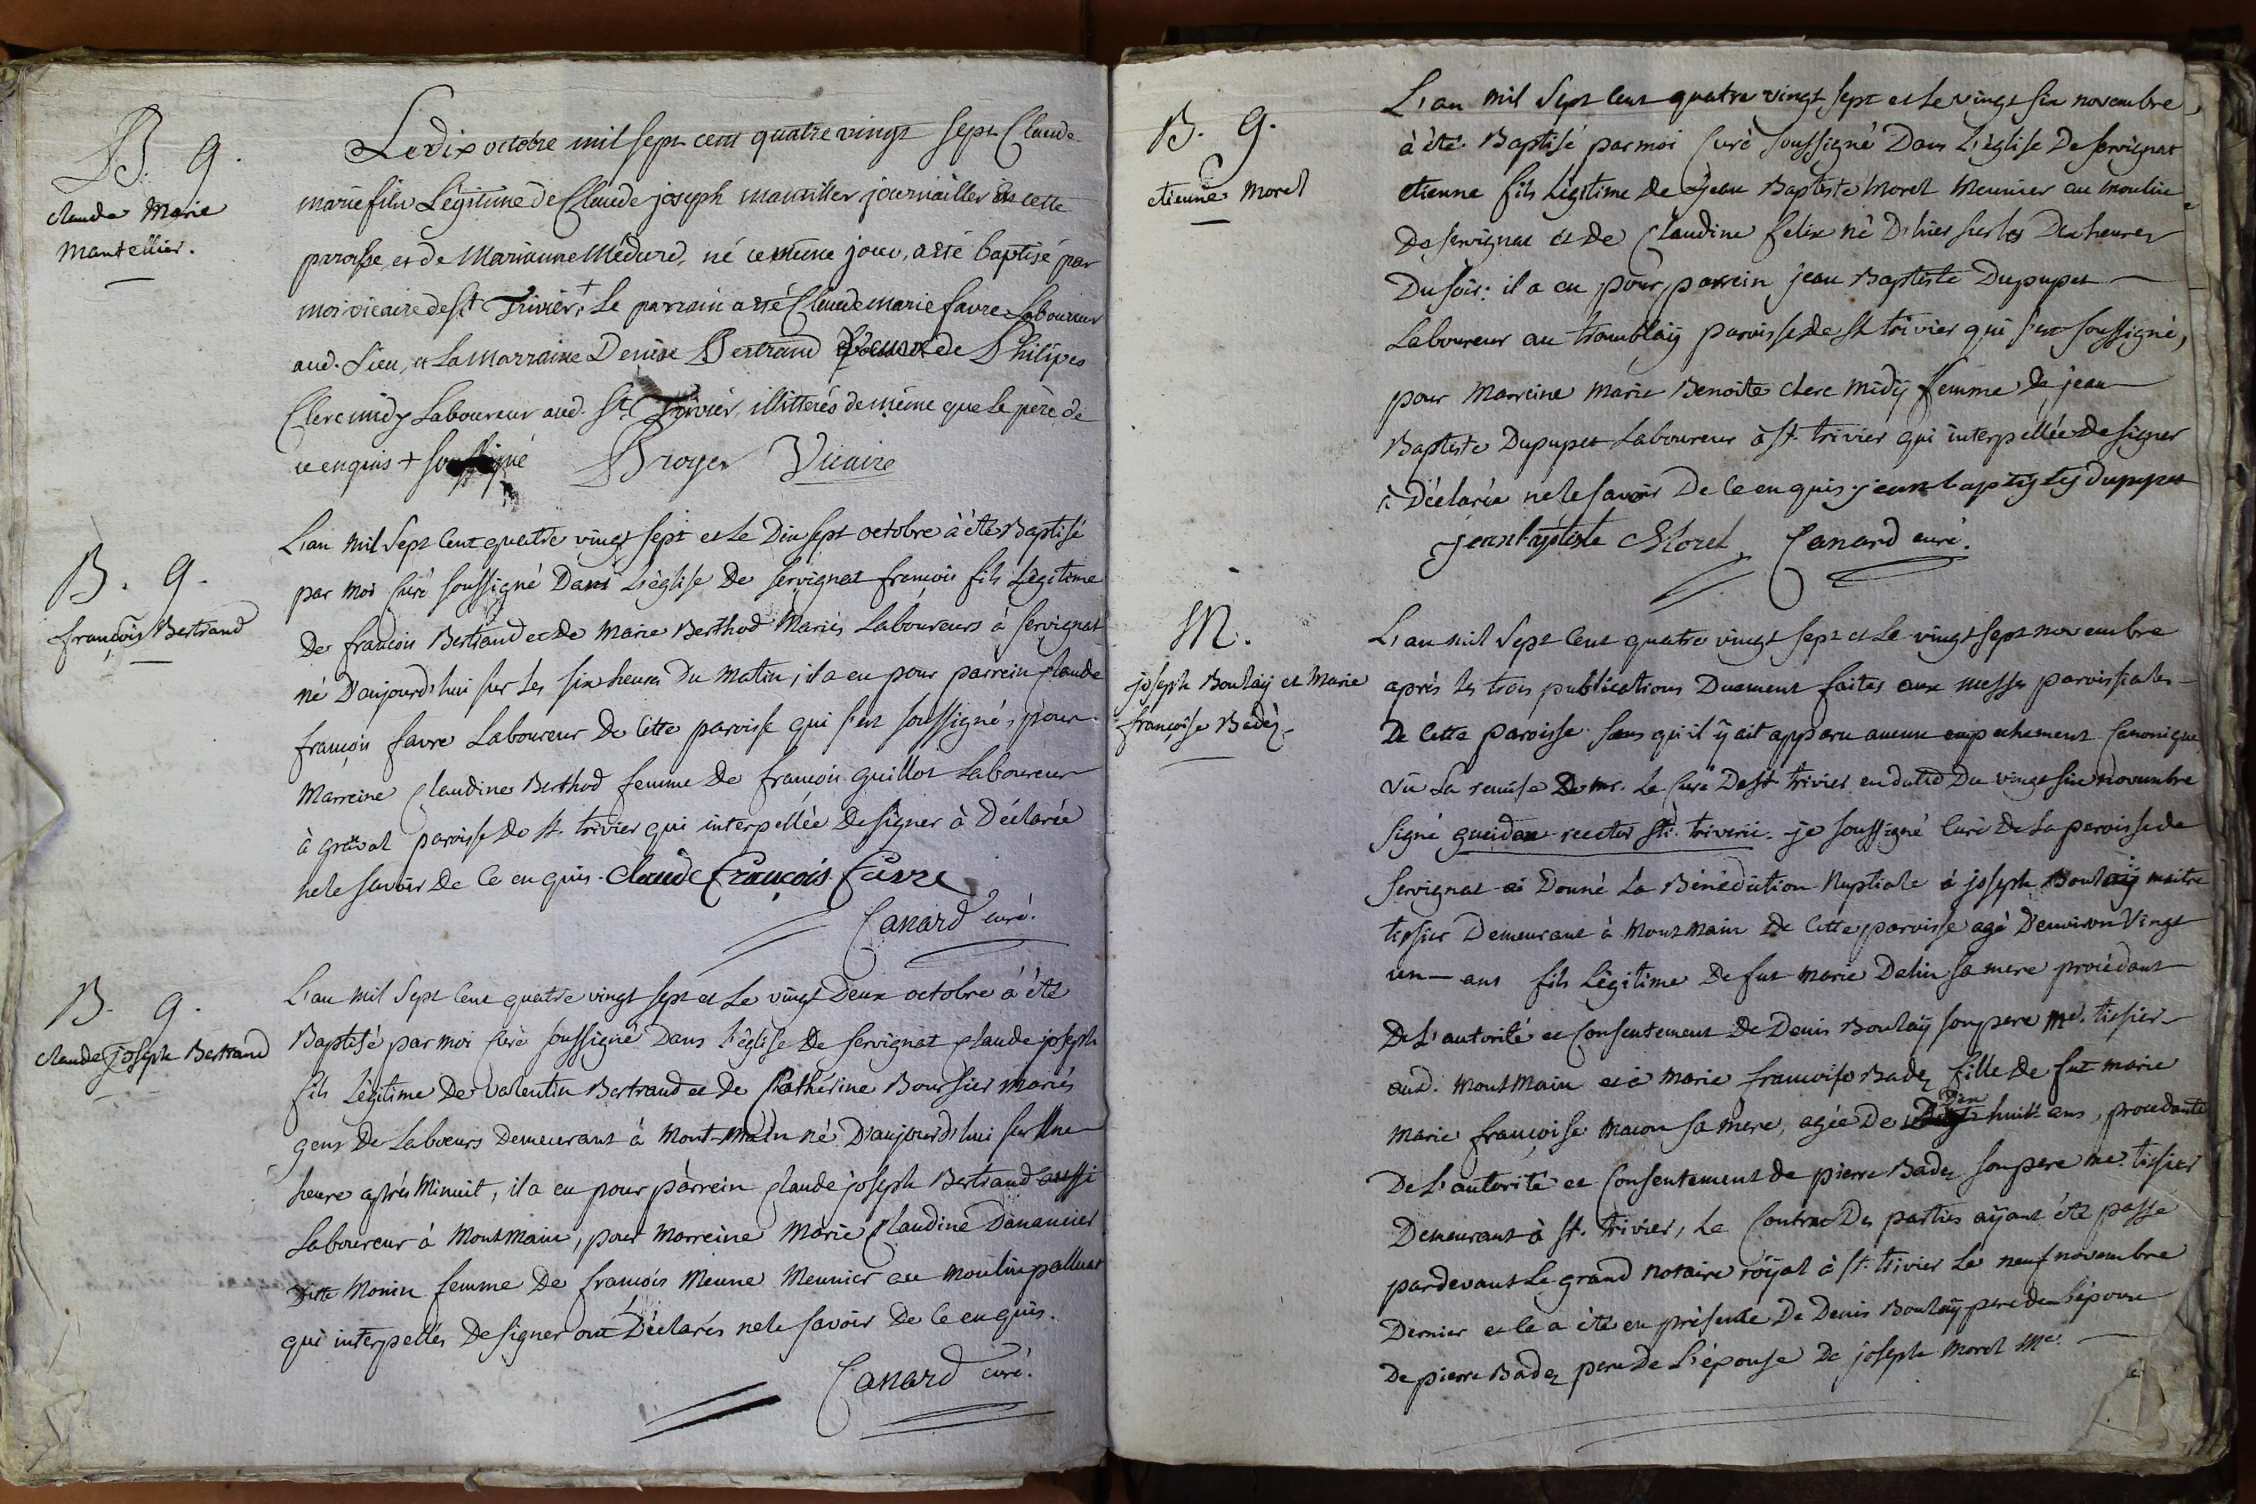 B. g.
claude Marie
Mantellier.
Le dix octobre mil sept cent quatre vingt sept Claude
marie fils Légitime de Claude joseph mantillier journailler en cette
paroisse, et de Marianne Médard, né ce même jour, a été baptisé par
moi vicaire de St Trivier+ Le parrain a été Claude marie favre Laboureur
aud. Lieu, et La marraine Denise Bertrand femme de Philipes
Clerc midy Laboureur aud. St Trivier, illittérés de même que le père de
ce enquis + soussigné Broyer Vicaire
B. g.
françois Bertrand
L'an mil sept Cent quatre vingt sept et Le Dix sept octobre à été Baptisé
par moi Curé soussigné Dans L'église De servignat françois fils Légitime
De françois Bertrand et De Marie Berthod Mariés Laboureurs à servignat
né D'aujourd'hui sur Les six heures Du Matin, il a eu pour parrein Claude
françois favre Laboureur De Cette paroisse qui s'est soussigné, pour
Marreine Claudine Berthod femme De françois guillot Laboureur
à graval paroisse De st. trivier qui interpellée De signer à Déclarée
ne le savoir De Ce enquis. claude François Favre
Canard curé.
B. g.
claude joseph Bertrand
L'an mil sept Cent quatre vingt sept et Le vingt Deux octobre à été
Baptisé par moi Curé soussigné Dans l'église De servignat Claude joseph
fils Légitime De valentin Bertrand et de Cathérine Boursier mariés
gens De Labeurs Demeurant à Mont-main né D'aujourd'hui sur Une
heure après Minuit, il a eu pour parrein Claude joseph Bertrand aussi
Laboureur à Montmain, pour Marreine Marie Claudine Danancier
Ditte Monin femme De françois Meune Meunier au Moulin palluat
qui interpellés De signer ont Déclarés ne le savoir De Ce enquis.
Canard curé.
B. g.
etienne Morel
L'an mil sept Cent quatre vingt sept et Le vingt six novembre,
à été Baptisé par moi Curé soussigné Dans L'église De servignat
etienne fils Légitime de jean Baptiste Morel Meunier au moulin
De servignat et De Claudine felix né D'hier sur les Dix heures
Du soir: il a eu pour parrein jean Baptiste Dupupet
Laboureur au tremblaÿ paroisse de st trivier qui s'est soussigné,
pour Marreine Marie Benoite clerc Midÿ femme de jean
Baptiste Dupupet Laboureur à st. trivier qui interpellée De signer
à Déclarée ne le savoir De Ce enquis. jean baptiste dupupet
jean baptiste Morel Canard curé.
M.
joseph Boulaÿ et Marie
françoise Badez.
L'an mil sept Cent quatre vingt sept et Le vingt sept novembre
après les trois publications Duement faites aux messes paroissiales
De Cette paroisse sans qu'il ÿ ait apparu aucun empechement Canonique
vu La remise De mr. Le Curé De st trivier en datte Du vingt six novembre
signé gueidan rector sti. triverii. je soussigné Curé De La paroisse de
servignat ai Donné La Bénédiction Nuptiale à joseph Boulaÿ maitre
tissier Demeurant à Montmain de Cette paroisse agé D'environ Vingt
un ans fils Légitime De fut marie Dalin sa mere procédant
De L'autorité et Consentement De Denis Boulaÿ son pere me. tissier
aud. Montmain et à marie françoise Badez fille De fut marie
marie françoise macon sa mere, agée De Dix huit ans, procedante
De L'autorité et Consentement de pierre Badez son pere me. tissier
Demeurant à st. trivier, Le Contrac Des parties aÿant été passé
pardevant Le grand notaire roÿal à st. trivier Le neuf novembre
Dernier et Ce a été en présence De Denis Boulaÿ pere de L'époux
De pierre Badez pere De L'épouse De joseph Morel Me.